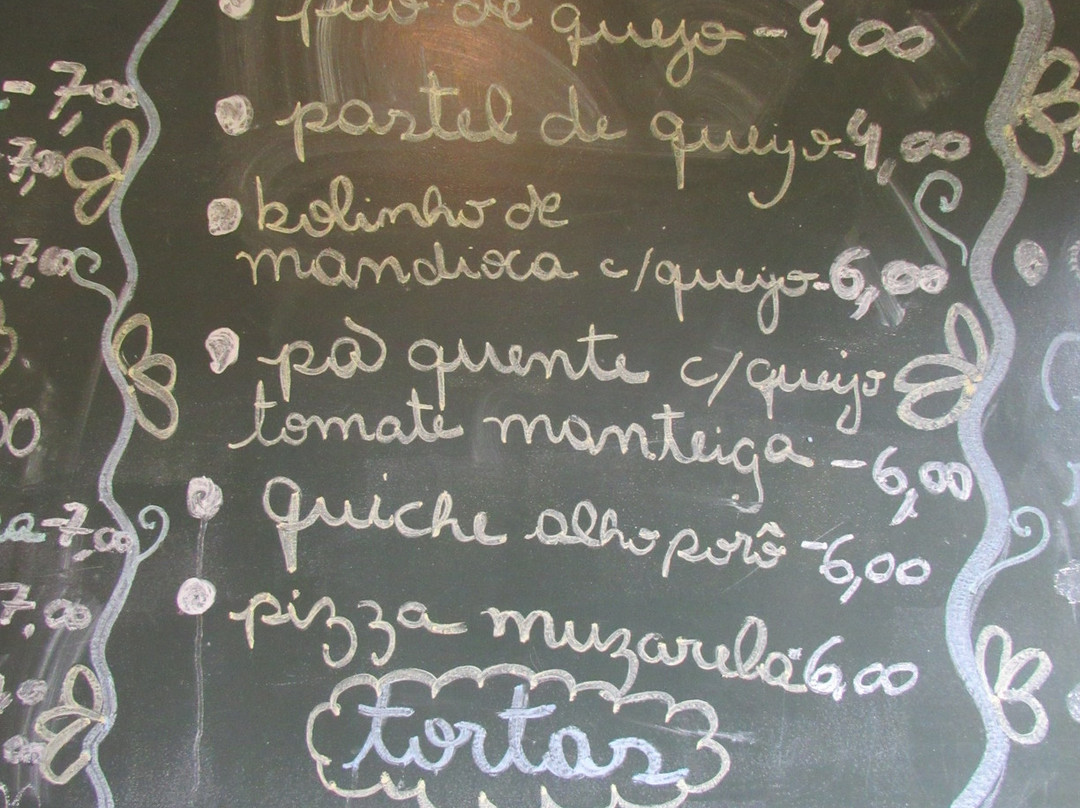 pão de queijo - 4,00
pastel de queijo - 4,00
bolinho de
mandioca c/ queijo - 6,00
pã quente c/ queijo
tomate manteiga - 6,00
quiche alho porô - 6,00
pizza muzarela 6,00
tortas
- 7,00
7,00
- 7,00
00
a - 7,00
7,00